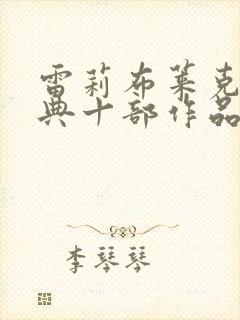 雷莉布莱克
典十部作品
李琴琴